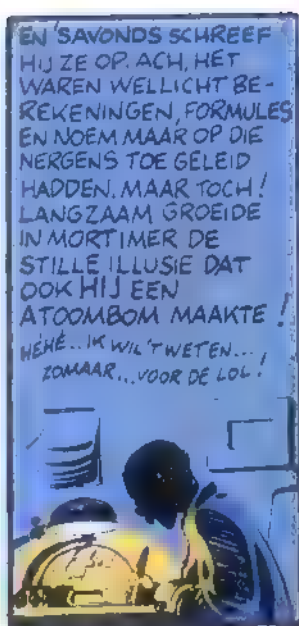 EN 'SAVONDS SCHREEF
HIJ ZE OP. ACH, HET
WAREN WELLICHT BE-
REKENINGEN, FORMULES
EN NOEM MAAR OP DIE
NERGENS TOE GELEID
HADDEN. MAAR TOCH!
LANGZAAM GROEIDE
IN MORTIMER DE
STILLE ILLUSIE DAT
OOK HIJ EEN
ATOOMBOM MAAKTE!
HÉHÉ... IK WIL 'T WETEN...
ZOMAAR... VOOR DE LOL!